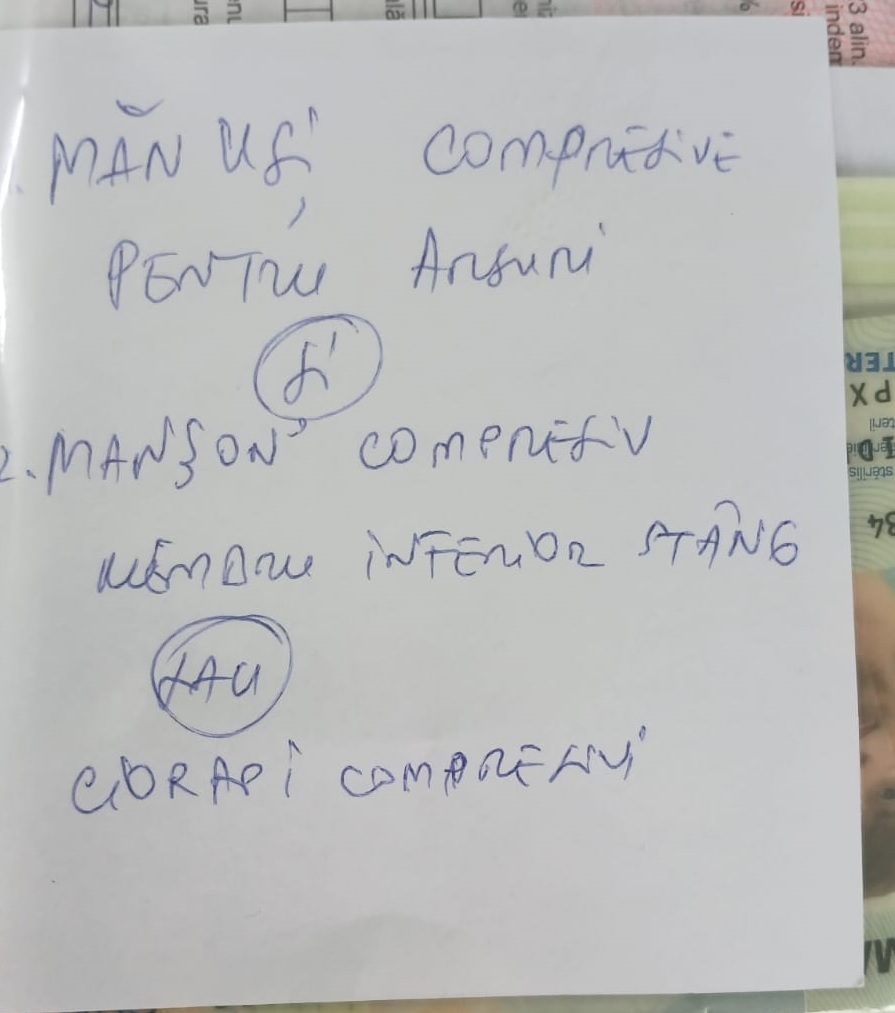 1. MĂNUSI COMPRESIVE
PENTRU ARSURI
SI
2. MANȘON COMPRESIV
MEMBRU INFERIOR STÂNG
SAU
CIORAPI COMPRESIVI
ura
enu
ală
%
si
3 alin.
indem
TER
PX
84